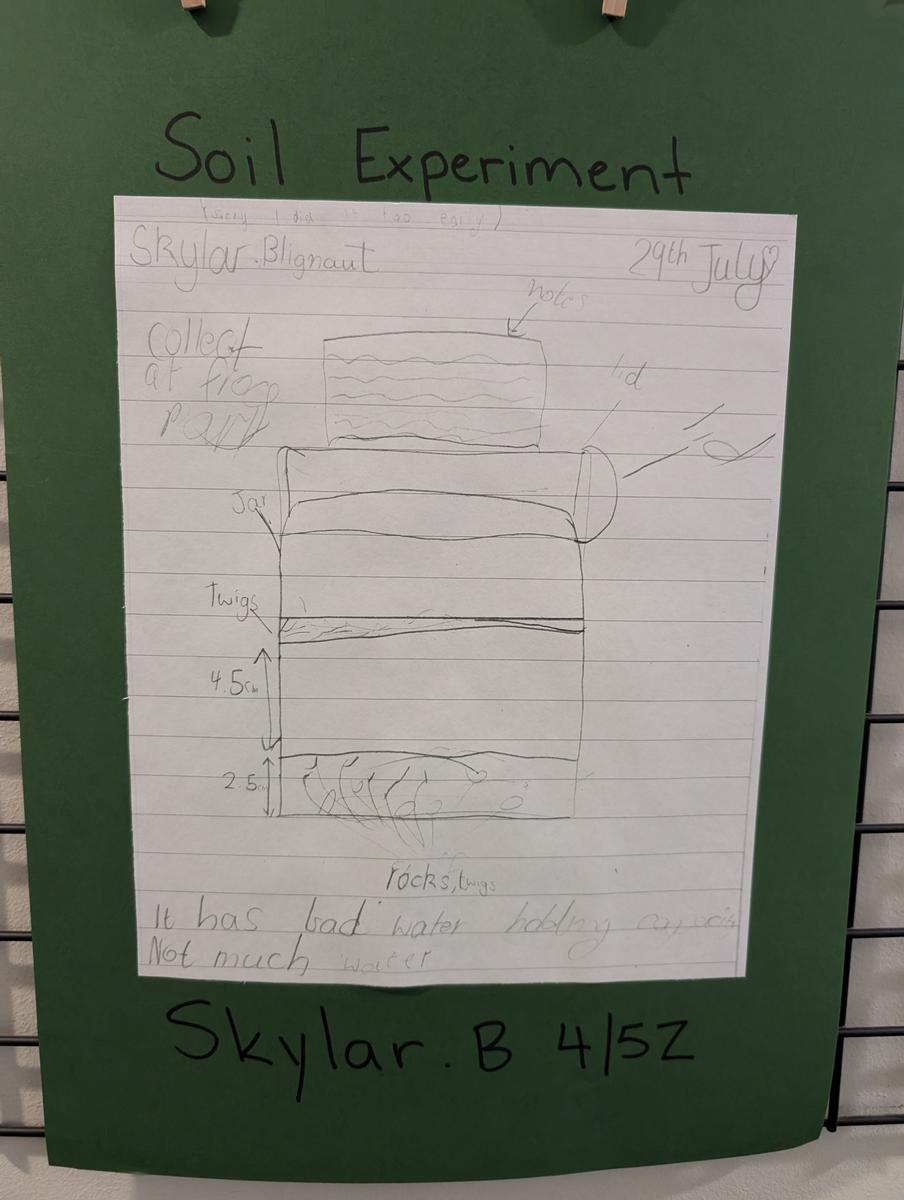 Soil Experiment
(Sorry I did it too early)
Skylar.Blignaut
29th July
notes
collect
at
lid
Jar
Twigs
4.5cm
2.5cm
rocks, twigs
It has bad water holding capacity
Not much water
Skylar.B 4/5Z